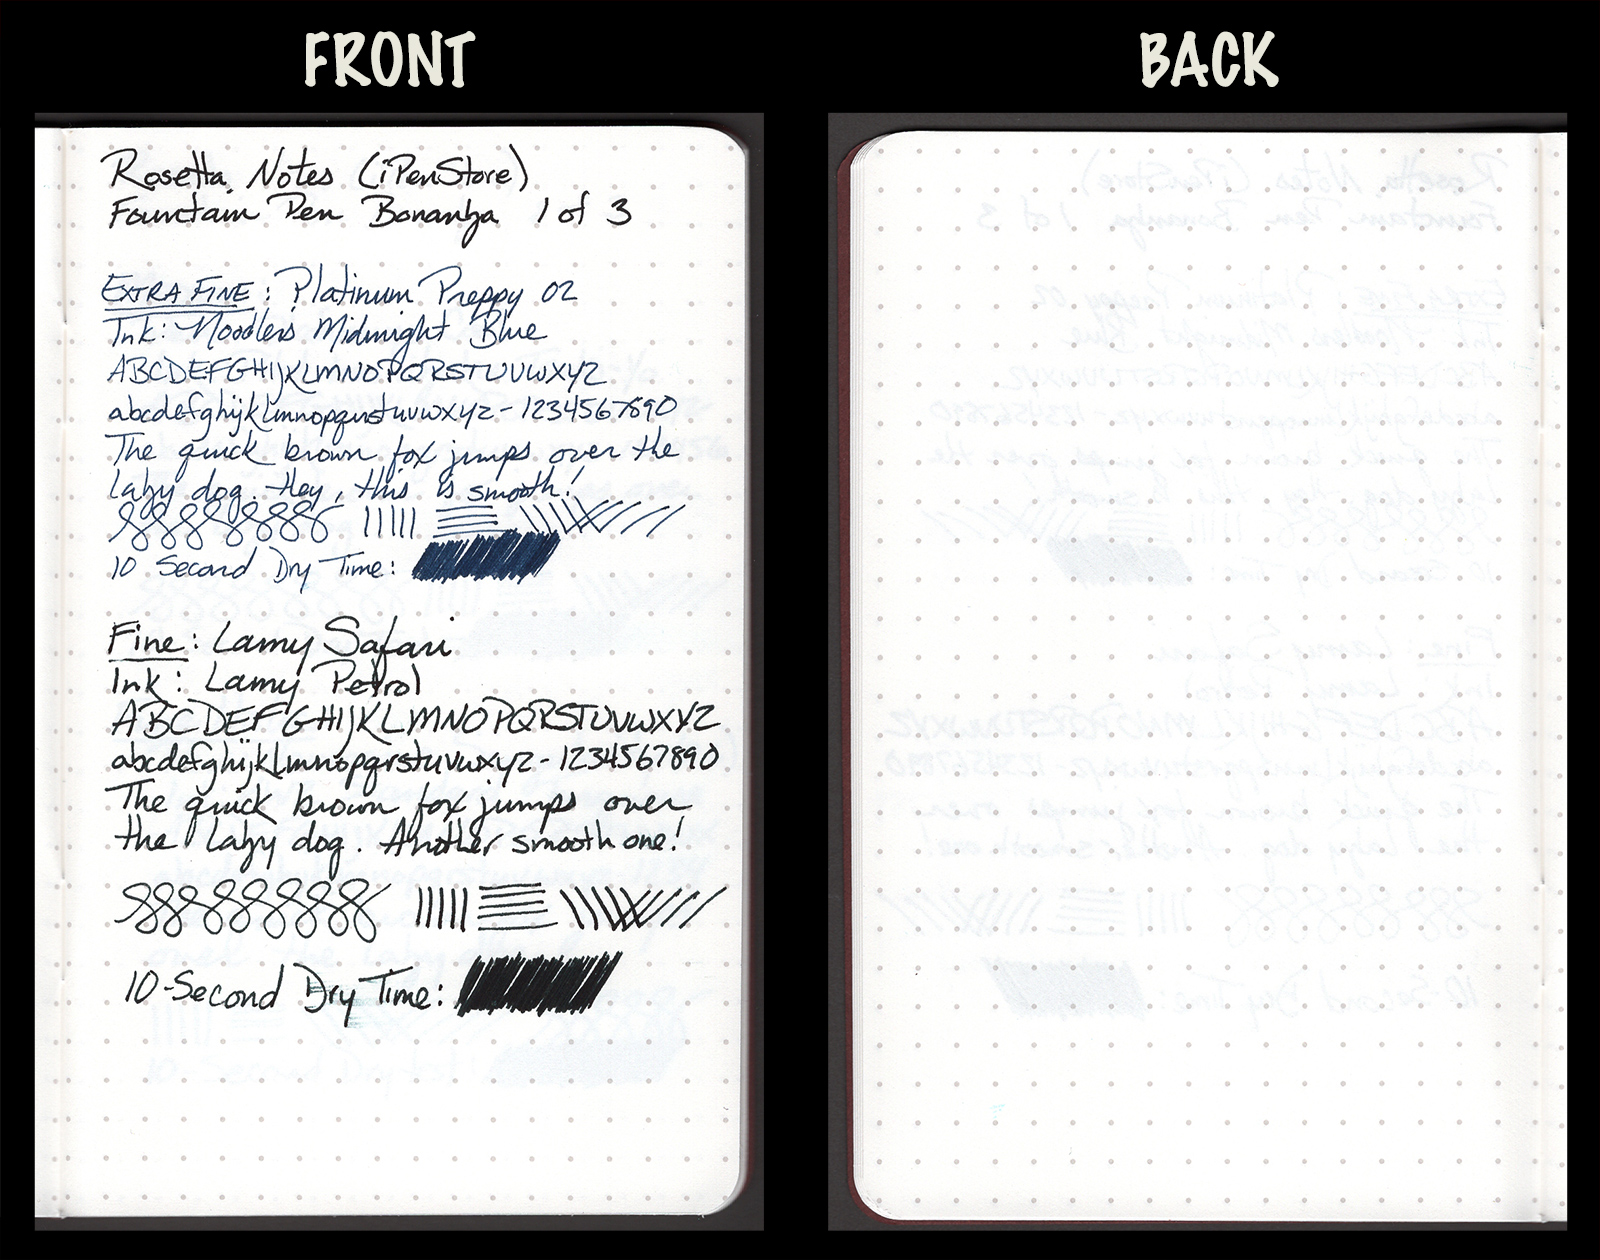 FRONT
BACK
Rosetta Notes (iPenStore)
Fountain Pen Bonanza 1 of 3
EXTRA FINE: Platinum Preppy 02
Ink: Noodlers Midnight Blue
ABCDEFGHIJKLMNOPQRSTUVWXYZ
abcdefghijklmnopqrstuvwxyz-1234567890
The quick brown fox jumps over the
lazy dog. Hey, this is smooth!
10 Second Dry Time:
Fine: Lamy Safari
Ink: Lamy Petrol
ABCDEFGHIJKLMNOPQRSTUVWXYZ
abcdefghijklmnopqrstuvwxyz-1234567890
The quick brown fox jumps over
the lazy dog. Another smooth one!
10-Second Dry Time: